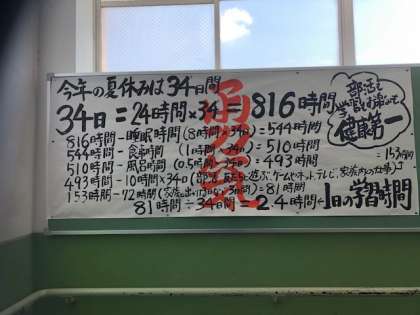 今年の夏休みは34日間
34日=24時間×34=816時間
816時間-睡眠時間(8時間×34日)=544時間
544時間-食事時間(1時間×34日)=510時間
510時間-風呂時間(0.5時間×34日)=493時間
493時間-10時間×34日(部活、友だちと遊ぶ、ゲームやネット、テレビ、家族内の仕事)=153時間
153時間-72時間(家族と出かける3日間)=81時間
81時間÷34日間=2.4時間←1日の学習時間
部活も
学習も
健康第一